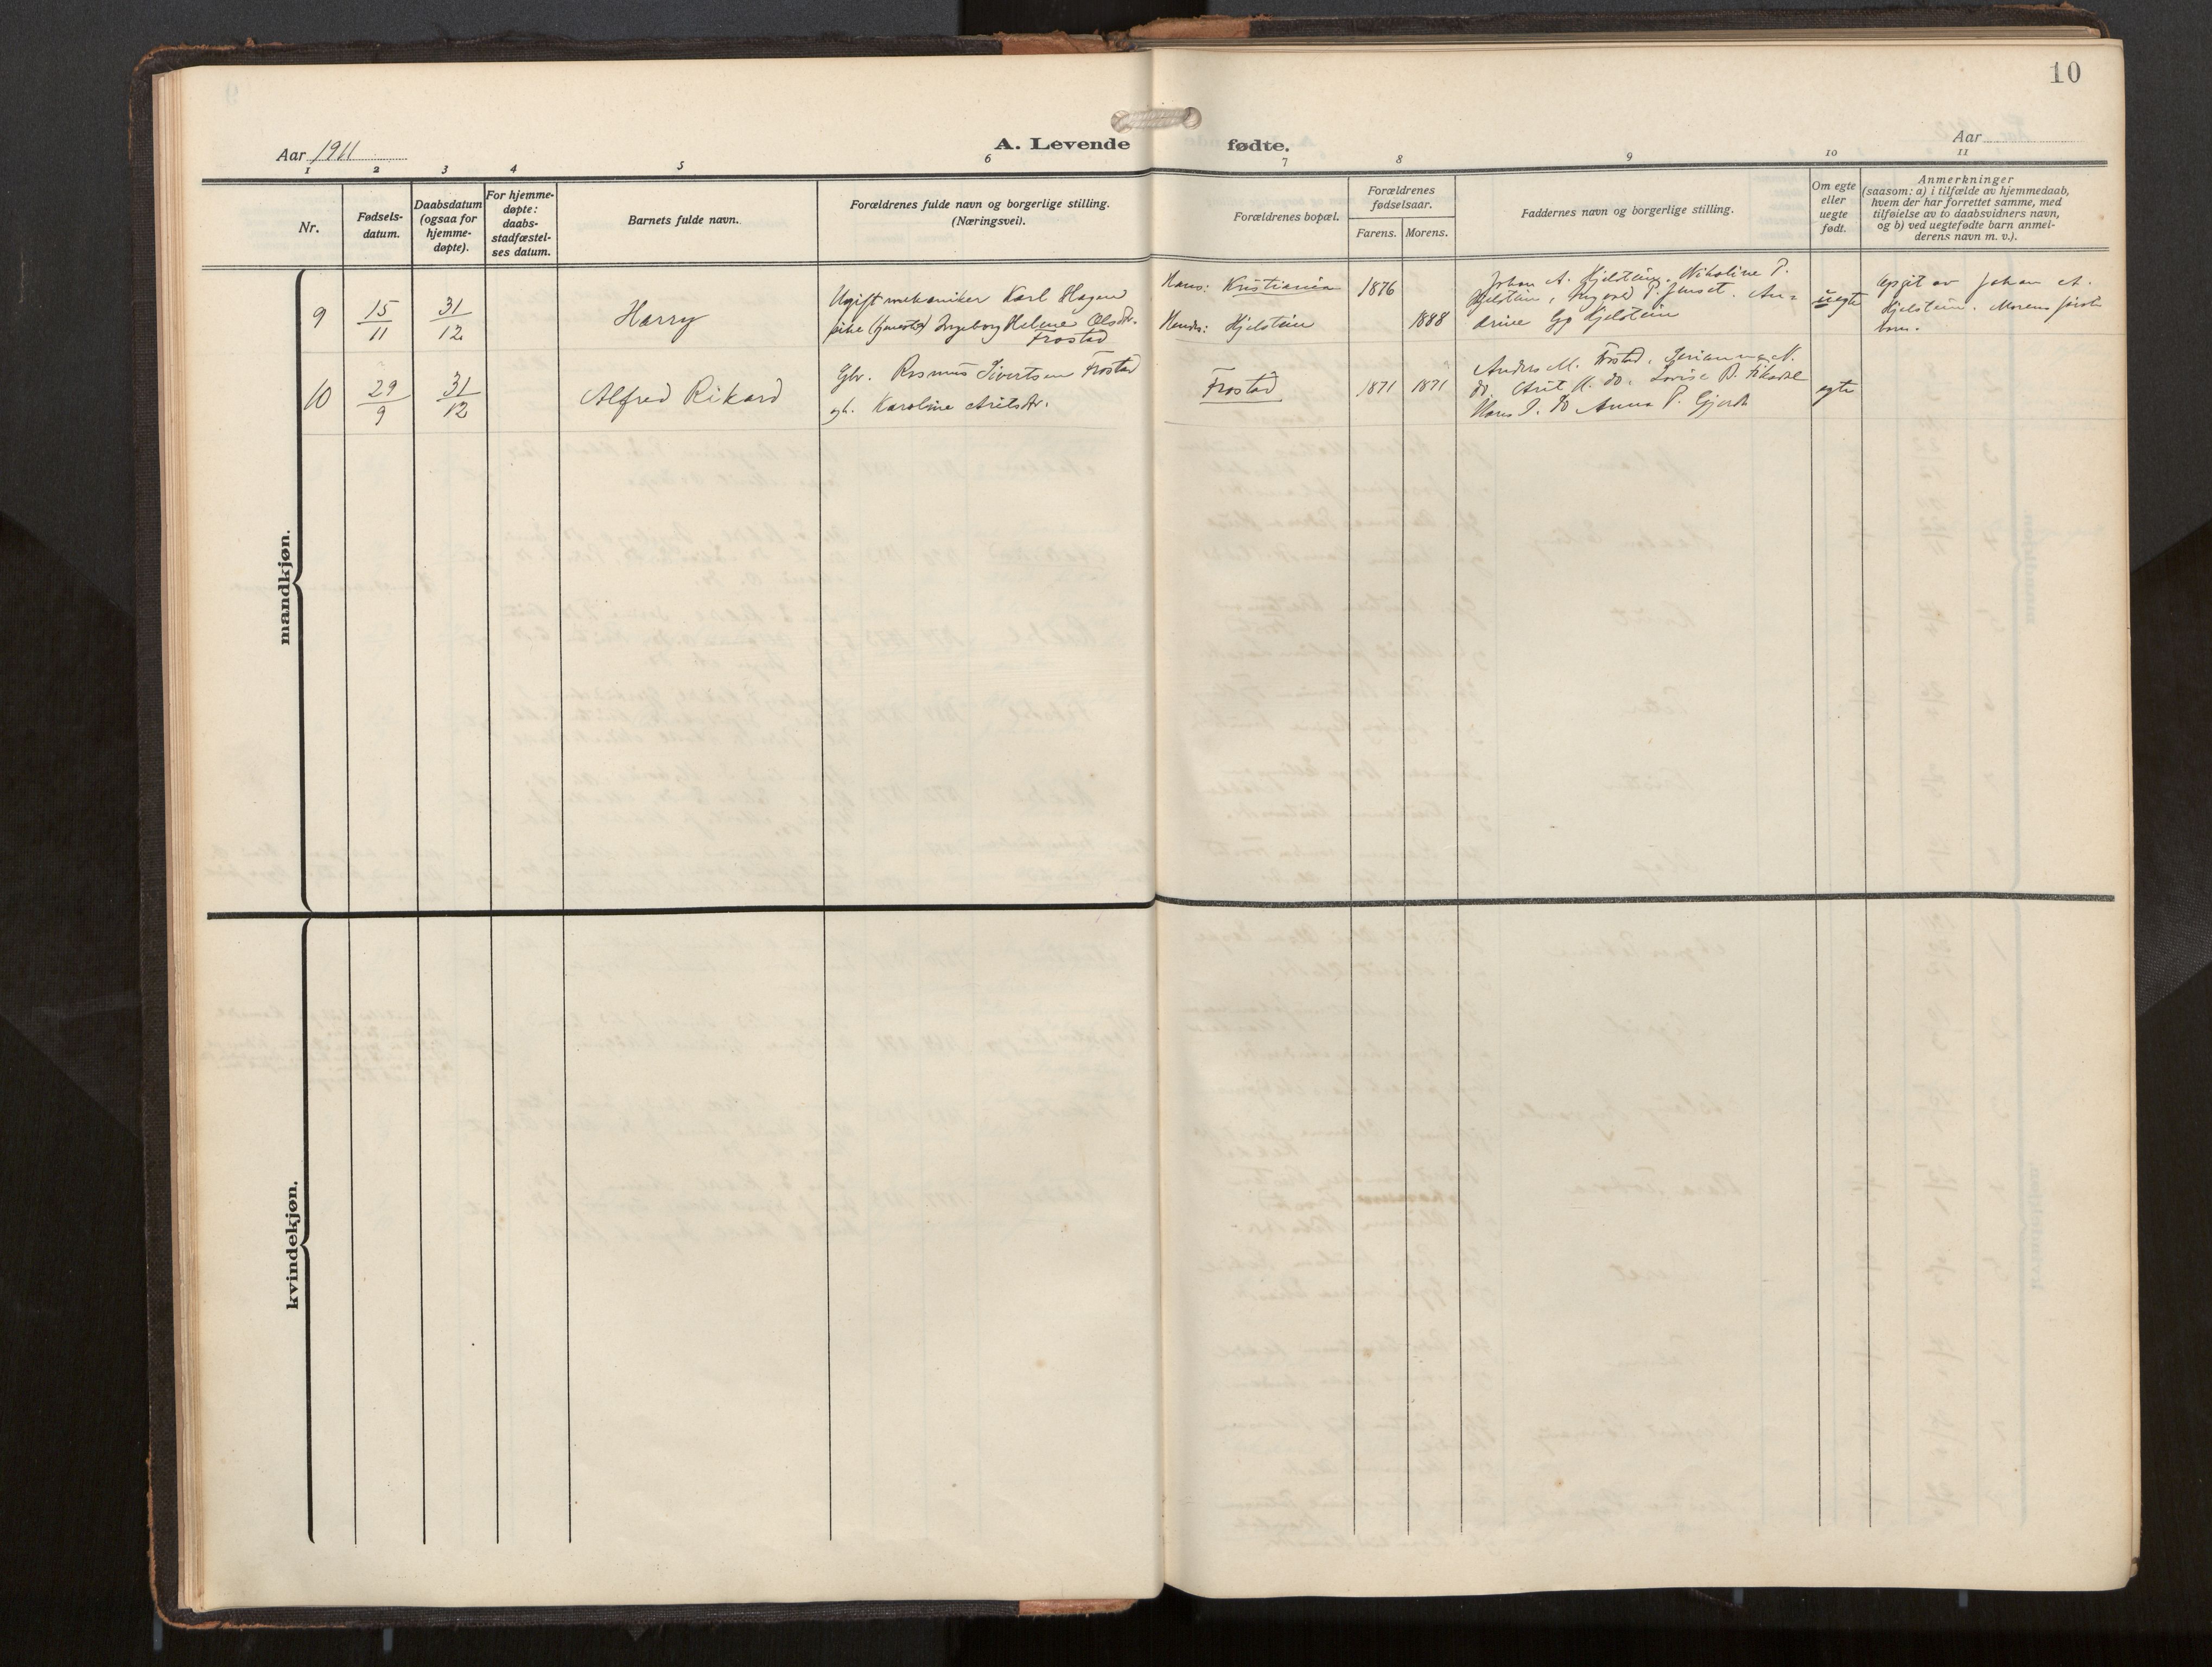 10
Aar 1911
A. Levende fødte.
Aar
1 2 3 4 5 6 7 8 9 10 11
Nr.
Fødsels-
datum.
Daabsdatum
(ogsaa for
hjemme-
døpte).
For hjemme-
døpte:
daabs-
stadfæstel-
ses datum.
Barnets fulde navn.
Forældrenes fulde navn og borgerlige stilling.
(Næringsvei).
Forældrenes bopæl.
Forældrenes
fødselsaar.
Farens. Morens.
Faddernes navn og borgerlige stilling.
Om egte
eller
uegte
født.
Anmerkninger
(saasom: a) i tilfælde av hjemmedaab,
hvem der har forrettet samme, med
tilføielse av to daabsvidners navn,
og b) ved uegtefødte barn anmel-
derens navn m. v.).
mandkjøn.
9
15/11
31/12
Harry
Ugift mekaniker Karl Hagen
pike (tjeneste) Ingeborg Helene Olsdtr.
Frostad
Hans: Kristiania
Hendes: Hjelstein
1876
1888
Johan A. Hjelstein, Nikoline P.
Hjelstein, P. An=
Hjelstein
uegte
Opgit av Johan A.
Hjelstein. Morens første
barn.
10
29/9
31/12
Alfred Rikard
Gbr. Rasmus Sivertsen Frostad
gh. Karoline Aritsdtr.
Frostad
1871
1871
Anders M. Frostad, N.
do, Arit K. do, Lovise B.
Hans J. do Anna P. Gjerde
egte
kvindekjøn.